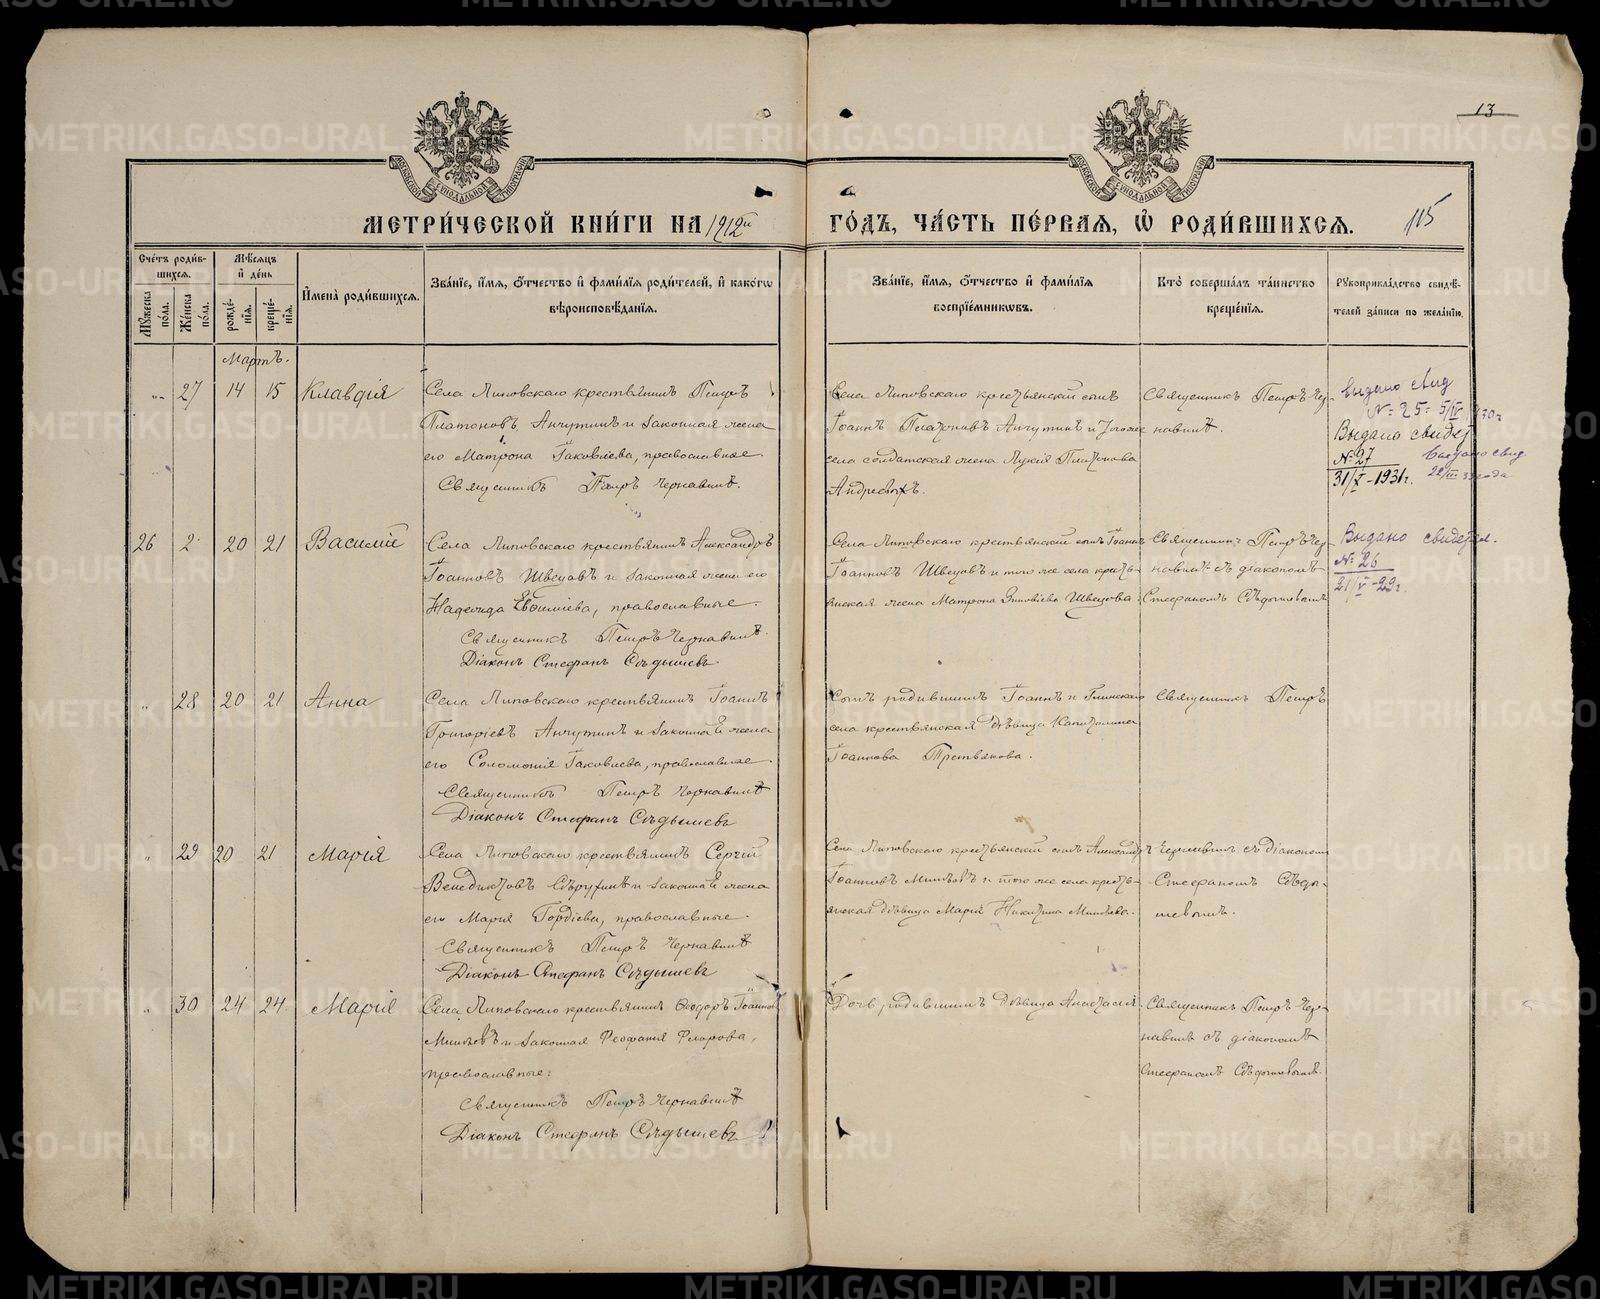 13
МЕТРИ́ЧЕСКОЙ КНИ́ГИ НА 1912й ГО́ДЪ, ЧА́СТЬ ПЕ́РВАЯ, Ѡ РОДИ́ВШИХСЯ.
115
Сче́тъ роди́вшихся.
Му́жеска по́ла.
Же́нска по́ла.
Мѣ́сяцъ и҆ де́нь
рожде́нія.
креще́нія.
И҆мена̀ роди́вшихся.
Зва́нїе, и҆́мя, ѻ҆́тчество и҆ фами́лїя роди́телей, и҆ како́гѡ
вѣроисповѣ́данїя.
Зва́нїе, и҆́мя, ѻ҆́тчество и҆ фами́лїя
воспрїе́мникѡвъ.
Кто̀ соверша́лъ та́инство
креще́нїя.
Рꙋкоприкла́дство свидѣ́телей за́писи по жела́нїю.
Мартъ.
27 14 15 Клавдія
Села Липовскаго крестьянинъ Петръ
Платоновъ Анчутинъ и законная жена
его Матрона Іаковлева, православные
Священникъ Петръ Чернавинъ.
Села Липовскаго крестьянскій сынъ
Іоаннъ Платоновъ Анчутинъ и того же
села солдатская жена Лукія Платонова
Священникъ Петръ Чер-
навинъ.
Выдано свид
№ 25 5/IV 1930 г
Выдано свидет
№ 27
31/X - 1931 г.
Выдано свид.
26 2 20 21 Василій
Села Липовскаго крестьянинъ Александръ
Іоанновъ Швецовъ и законная жена его
Надежда Евѳиміева, православные.
Священникъ Петръ Чернавинъ.
Діаконъ Стефанъ Сѣдышевъ
Села Липовскаго крестьянскій сынъ Іоаннъ
Іоанновъ Швецовъ и того же села кресть-
янская жена Матрона Зиновіева Швецова.
Священникъ Петръ Чер-
навинъ съ діакономъ
Стефаномъ Сѣдышевымъ
Выдано свидетел.
№ 26
21/V - 29 г.
28 20 21 Анна
Села Липовскаго крестьянинъ Іоаннъ
Григоріевъ Анчутинъ и законная жена
его Соломонія Іаковлева, православные.
Священникъ Петръ Чернавинъ
Діаконъ Стефанъ Сѣдышевъ
Сынъ родившихъ Іоаннъ и Глинскаго
села крестьянская дѣвица Капитолина
Іоаннова Третьякова.
Священникъ Петръ
29 20 21 Марія
Села Липовскаго крестьянинъ Сергій
Венедиктовъ и законная жена
его Марія Гордіева, православные.
Священникъ Петръ Чернавинъ
Діаконъ Стефанъ Сѣдышевъ
Села Липовскаго крестьянскій сынъ Александръ
Іоанновъ Минѣевъ и того же села кресть-
янская дѣвица Марія Никитина Минѣева.
Чернавинъ съ діакономъ
Стефаномъ Сѣды-
шевымъ.
30 24 24 Марія
Села Липовскаго крестьянинъ Ѳеодоръ Іоанновъ
Минѣевъ и законная Ѳеофанія Флорова,
православные:
Священникъ Петръ Чернавинъ
Діаконъ Стефанъ Сѣдышевъ
Дочь родившихъ дѣвица Анастасія.
Священникъ Петръ Чер-
навинъ съ діакономъ
Стефаномъ Сѣдышевымъ.
METRIKI.GASO-URAL.RU